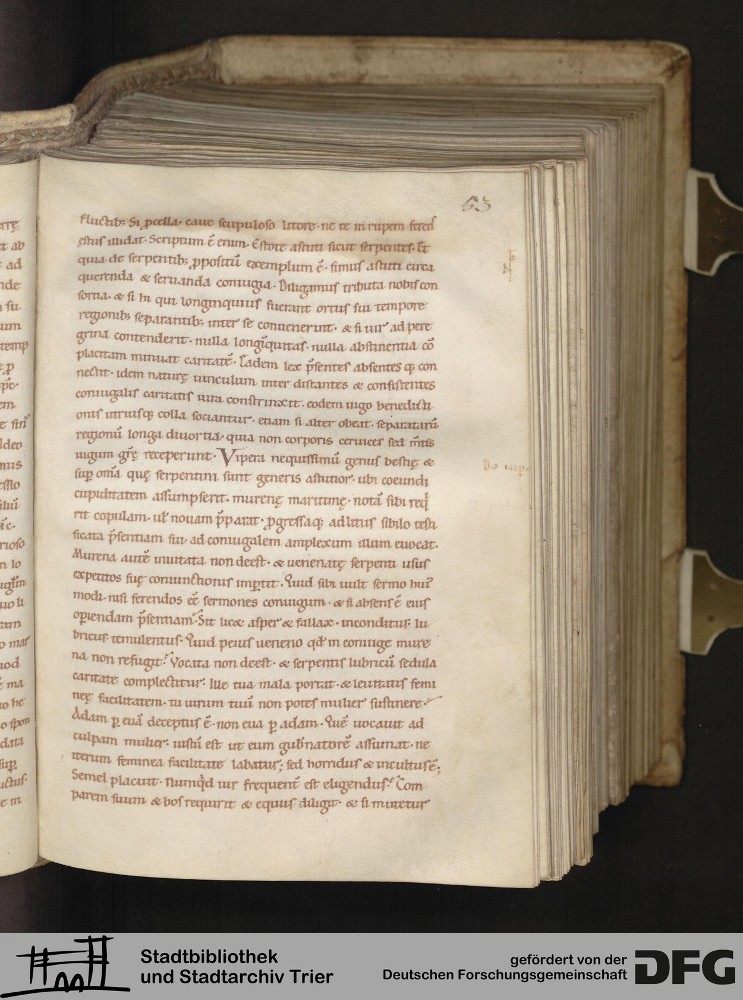 53
fluctib; Si ꝓcella· caue scupuloso litore· ne te in rupem feren
estus illidat· Scriptum ē enim· Estote astuti sicut serpentes· Et
quia de serpentib; ꝓpositū exemplum ē· simus astuti circa
querenda & seruanda coniugia· Diligamus tributa nobis con
sortia· & si hi qui longinquius fuerant ortus sui tempore
regionib; separantib; inter se conuenerint· & si uir ad pere
grina contenderit· nulla longīquitas· nulla absentia cō
placitam minuat caritatē· Eadem lex p̄sentes absentes q; con
nectit· idem naturę uinculum inter distantes & consistentes
coniugalis caritatis iura constrinxit· eodem iugo benedicti
onis utriusq; colla sociantur· etiam si alter obeat· separatarū
regionū longa diuortia· quia non corporis ceruices sed m̄tis
iugum grę̄ receperunt· Vipera nequissimū genus bestię &
sup om̄a quę serpentini sunt generis astutior· ubi coeundi
cupiditatem assumpserit· murenę maritimę· notā sibi req̇
rit copulam· ul' nouam p̄parat· ꝓgressaq; ad litus sibilo testi
ficata p̄sentiam sui· ad coniugalem amplexum illum euocat·
Murena autē inuitata non deest· & uenenatę serpenti usus
expetitos suę coniunctionis imꝑtit· Quid sibi uult sermo hui'
modi· nisi ferendos eē sermones coniugum· & si absens ē eius
oꝑiendam p̄sentiam· Sit licet asper & fallax· inconditus· lu
bricus· temulentus· Quid peius ueneno qd̄ in coniuge mure
na non refugit? Vocata non deest· & serpentis lubricū sedula
caritate complectitur· Ille tua mala portat· & leuitatis femi
neę facilitatem· tu uirum tuū non potes mulier sustinere·
Adam ꝑ euā deceptus ē· non eua ꝑ adam· Quē uocauit ad
culpam mulier· iustū est ut eum gub'natorē assumat· ne
iterum feminea facilitate labatur; sed horridus & incultus ē;
Semel placuit· Numq̇d uir frequent' est eligendus? Com
parem suum & bos requirit & equus diligit· & si mutetur
Stadtbibliothek
und Stadtarchiv Trier
gefördert von der
Deutschen Forschungsgemeinschaft
DFG